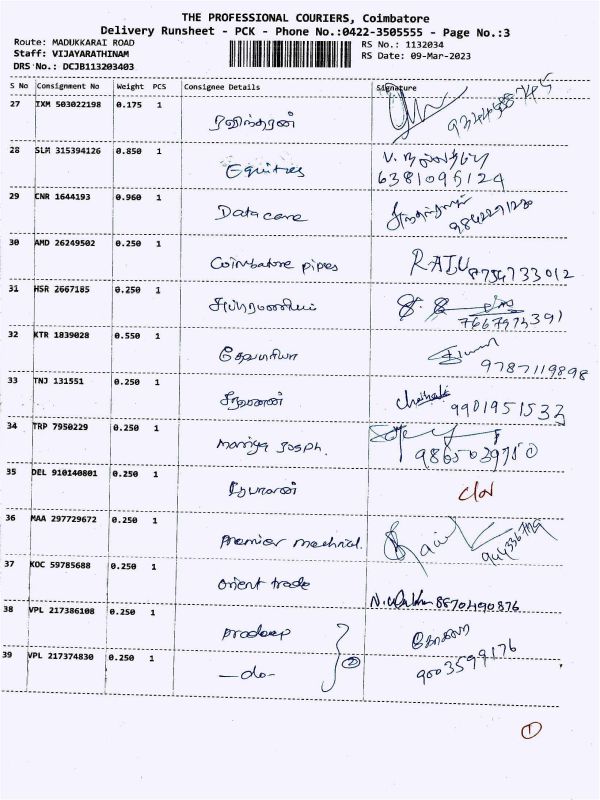 THE PROFESSIONAL COURIERS, Coimbatore
Delivery Runsheet - PCK - Phone No.:0422-3505555 - Page No.:3
Route: MADUKKARAI ROAD
Staff: VIJAYARATHINAM
DRS No.: DCJB113203403
RS No.: 1132034
RS Date: 09-Mar-2023
S No Consignment No Weight PCS Consignee Details Signature
27 IXM 503022198 0.175 1
ரவிந்தரன்
28 SLM 315394126 0.850 1
Equities
6381095124
29 CNR 1644193 0.960 1
Data care
30 AMD 26249502 0.250 1
Coimbatore pipes RAJU 8754733012
31 HSR 2667185 0.250 1
சுப்ரமணியம்
7667973391
32 KTR 1839028 0.550 1
தேவபிரியா
9787119898
33 TNJ 131551 0.250 1
9901951533
34 TRP 7950229 0.250 1
mariya Josph.
9865039750
35 DEL 910140801 0.250 1
36 MAA 297729672 0.250 1
premier
37 KOC 59785688 0.250 1
orient trade
8870490876
38 VPL 217386108 0.250 1
pradeep
39 VPL 217374830 0.250 1
—do— 2
9003599176
1